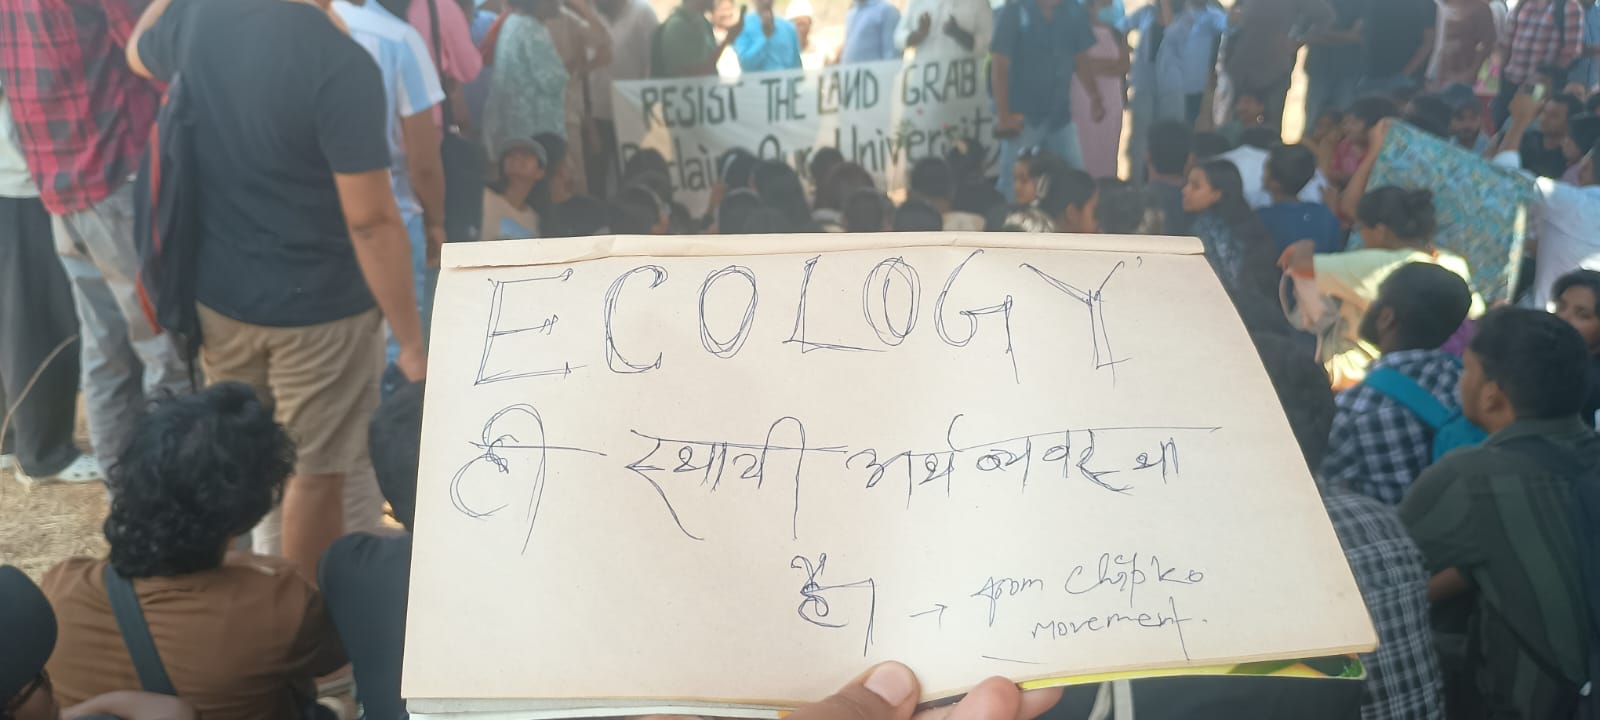 RESIST THE LAND GRAB
Reclaim Our University
ECOLOGY
ही स्थायी अर्थव्यवस्था
है। → from Chipko
movement.